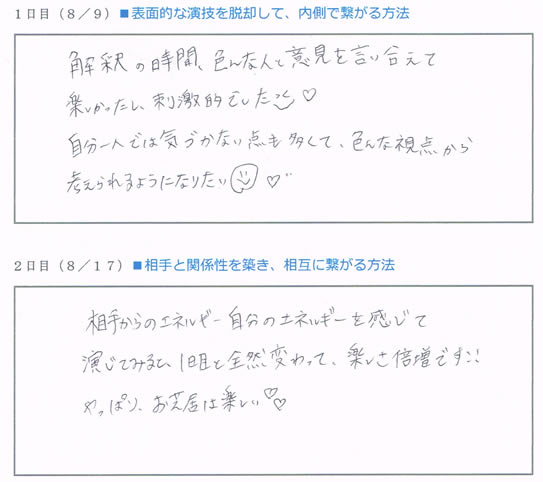 1日目(8/9)■表面的な演技を脱却して、内側で繋がる方法
解釈の時間、色んな人と意見を言い合えて
楽しかったし、刺激的でした♡
自分一人では気づかない点も多くて、色んな視点から
考えられるようになりたい♡
2日目(8/17)■相手と関係性を築き、相互に繋がる方法
相手からのエネルギー自分のエネルギーを感じて
演じてみると、1日目と全然変わって、楽しさ倍増です!!
やっぱり、お芝居は楽しい♡♡